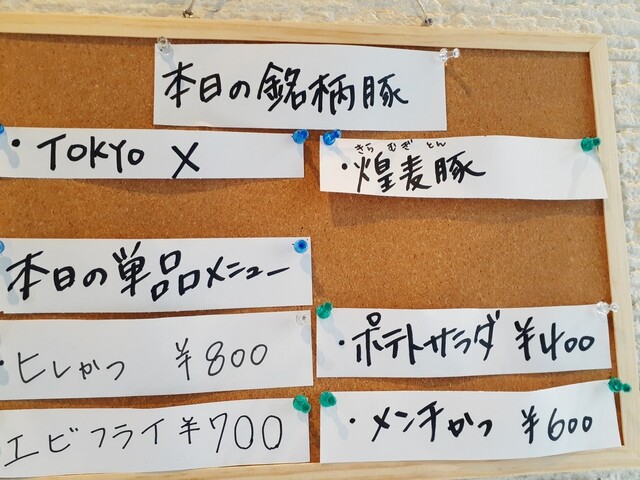 本日の銘柄豚
・TOKYO X
きら むぎ とん
・煌麦豚
本日の単品メニュー
・ヒレかつ ¥800
・ポテトサラダ ¥400
エビフライ ¥700
・メンチかつ ¥600